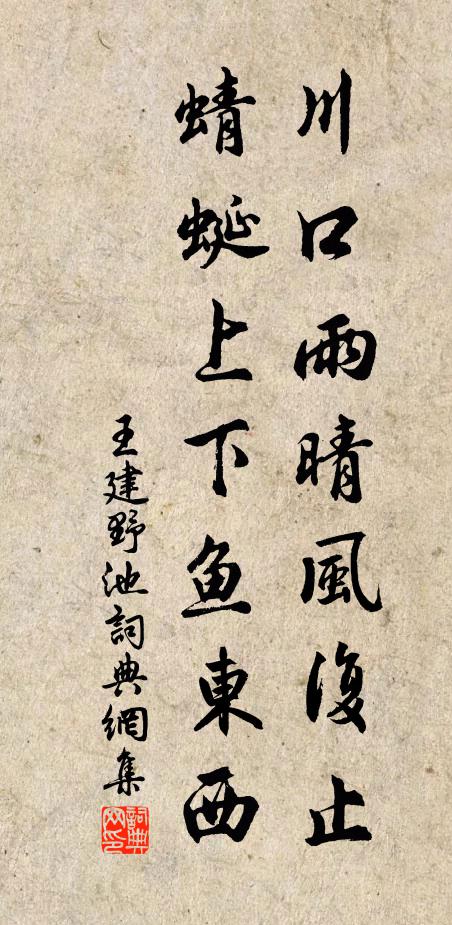 川口雨晴風復止
蜻蜓上下魚東西
王建野池詞典網集
詞典網印